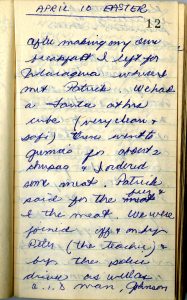 APRIL 10 EASTER
12
After making my own
breakfast I left for
where I
met Patrick. We had
a Fanta at his
cube (very clean &
safe) then went to
for about 2
& I ordered
some meat. Patrick
paid for the beer &
& the meat. We were
joined off & on by
Peter (the teacher) &
by the police
driver as well as
a man, Johnson